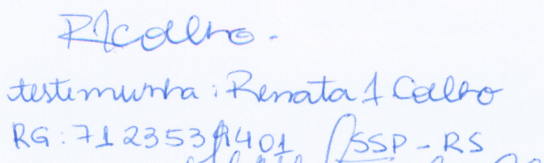 RICoelho.
testemunha: Renata I Coelho
RG: 7123531401 SSP-RS